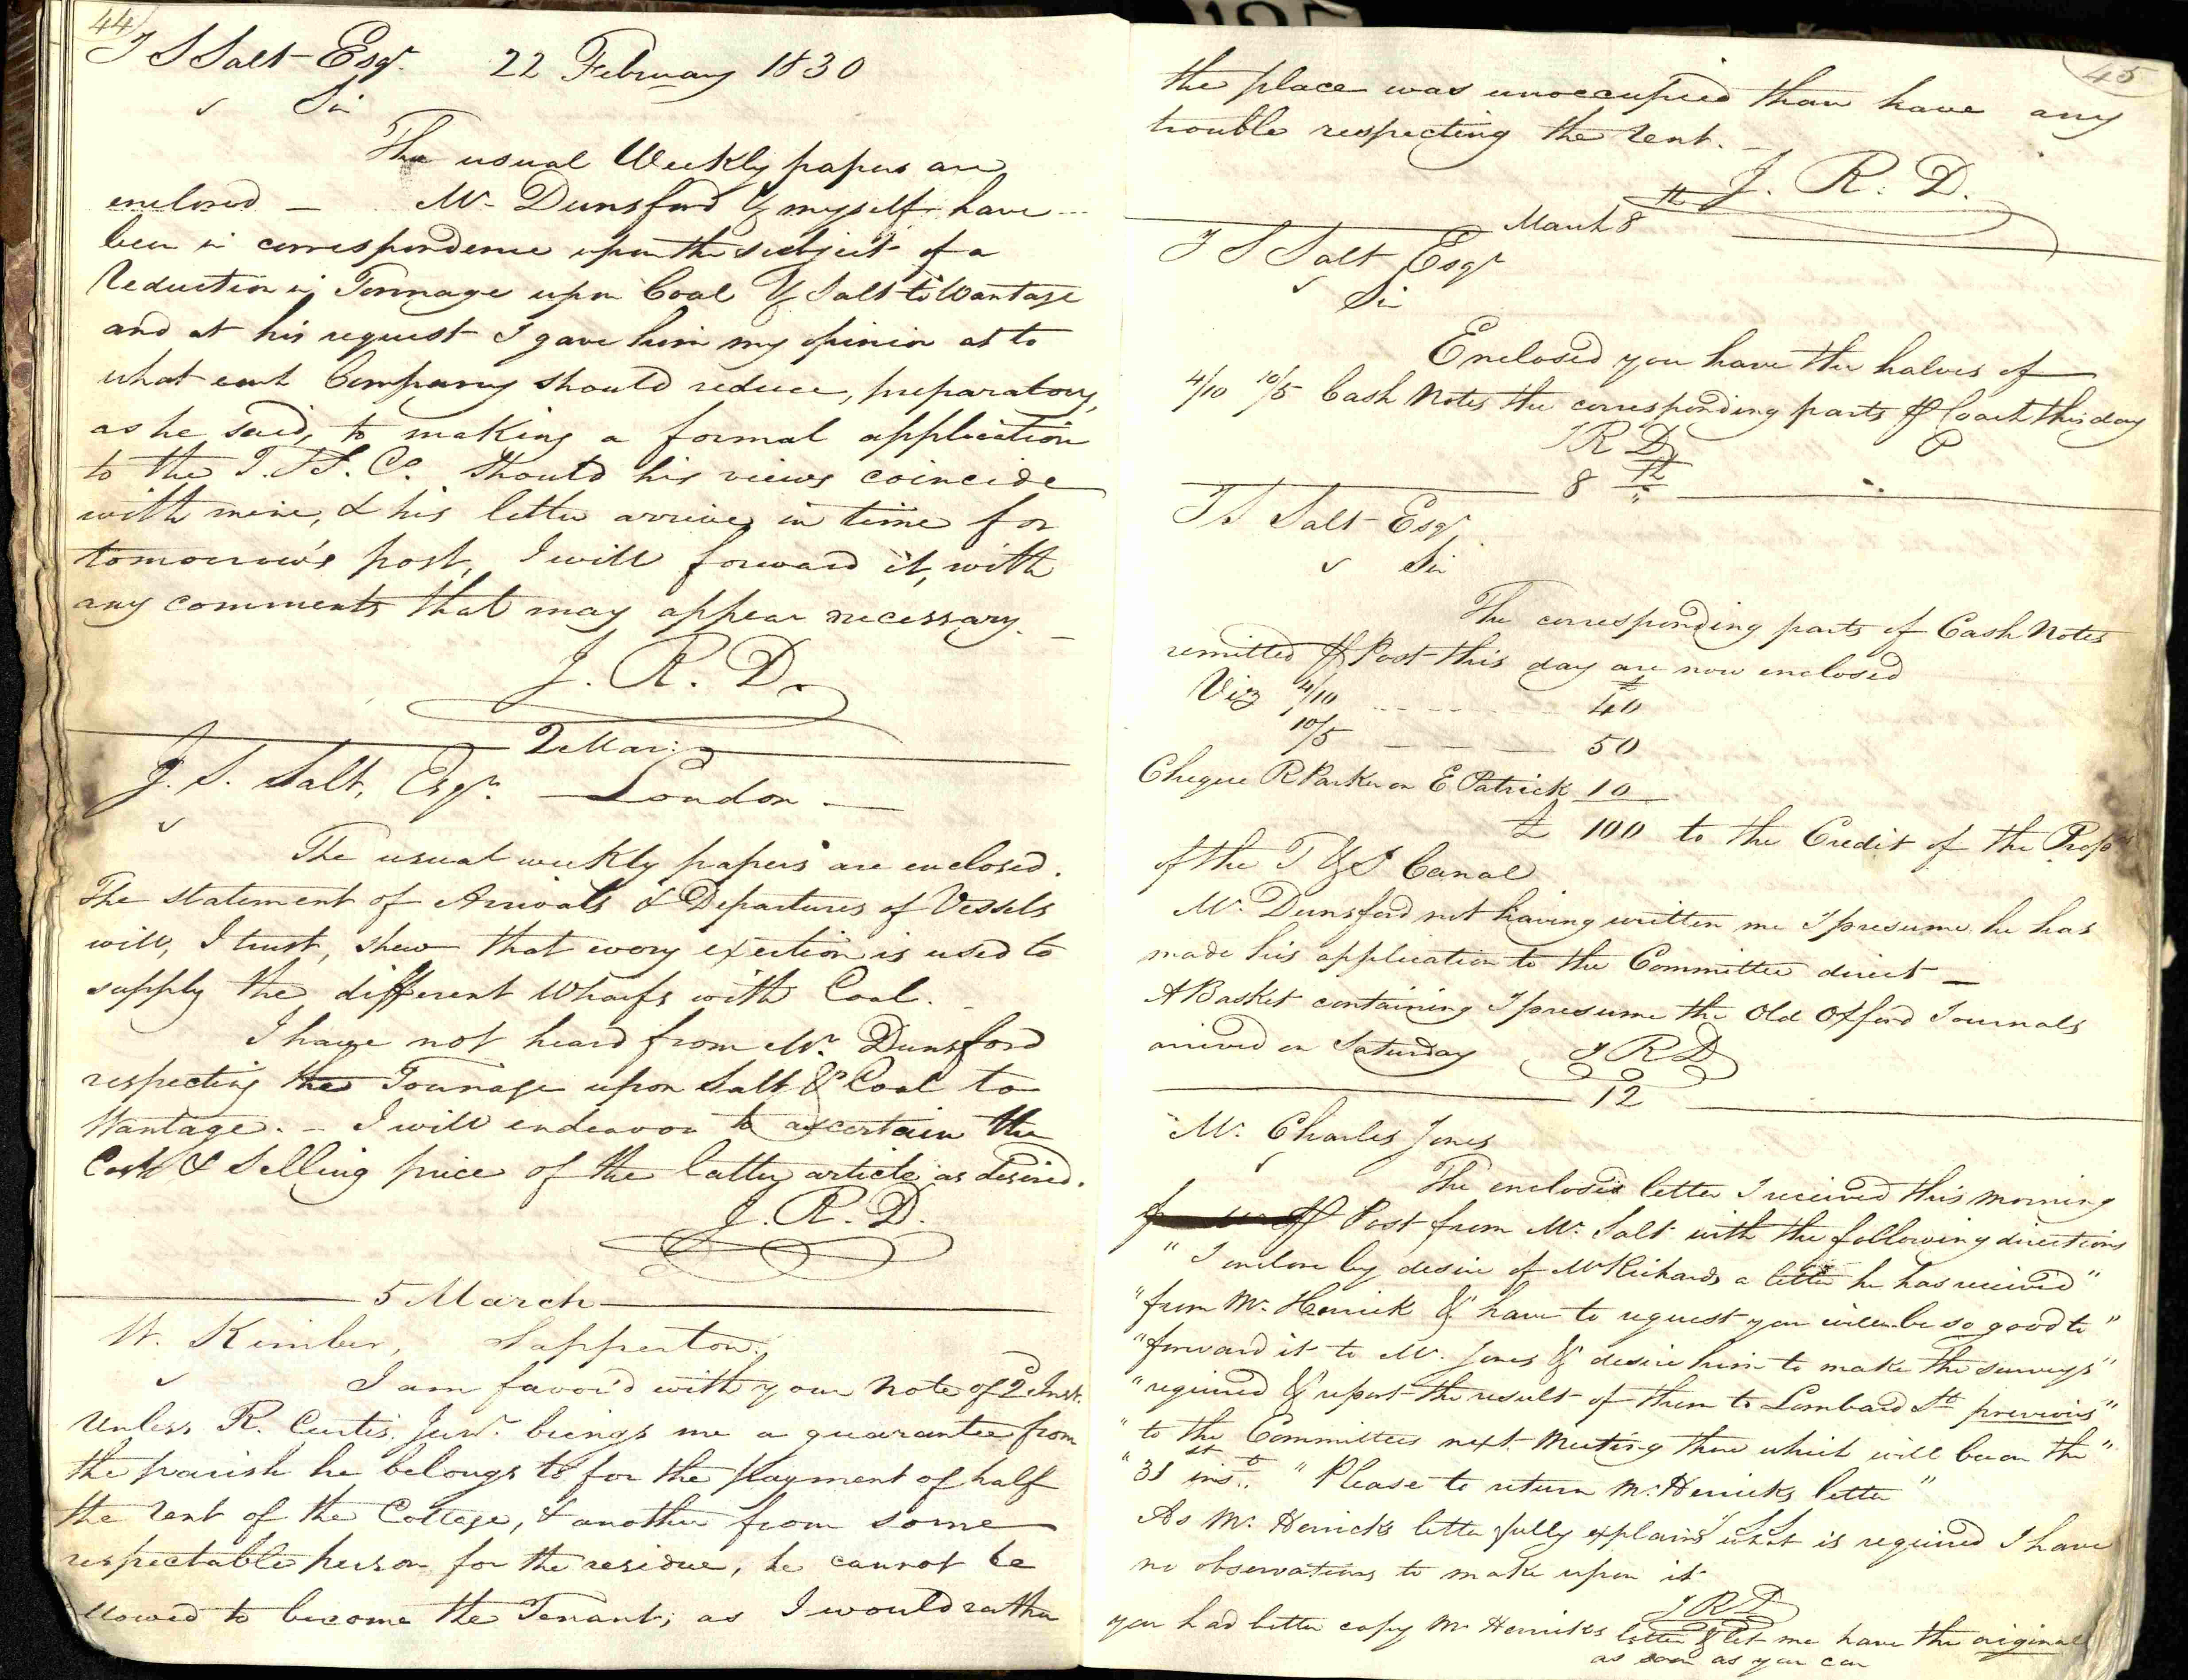 44
J S Salt Esqr. 22 February 1830
Sir
The usual Weekly papers are
enclosed – Mr Dunsford & myself have
been in correspondence upon the subject of a
Reduction in Tonnage upon Coal & Salt to Wantage
and at his request I gave him my opinion as to
what each Company should reduce, preparatory,
as he said, to making a formal application
to the T. & S. Co. Should his views coincide
with mine, & his letter arrive in time for
tomorrow's post, I will forward it, with
any comments that may appear necessary. –
J. R. D.
2 Mar:
J. S. Salt, Esqr. – London –
The usual weekly papers are enclosed.
The statement of Arrivals & Departures of Vessels
will, I trust, shew that every exertion is used to
supply the different Wharfs with Coal. –
I have not heard from Mr. Dunsford
respecting the Tonnage upon Salt & Coal to
Wantage. – I will endeavor to ascertain the
Cost & Selling price of the latter article as desired.
J. R. D.
5 March
W. Kimber, Sapperton.
I am favor'd with your note of 2d Inst.
Unless R. Curtis Junr. brings me a guarantee from
the parish he belongs to for the payment of half
the rent of the Cottage, & another from some
respectable person for the residue, he cannot be
allowed to become the Tenant; as I would rather
45
the place was unoccupied than have any
trouble respecting the rent. –
J. R. D.
March 8th
J S Salt Esqr
Sir
Enclosed you have the halves of
4/10 10/5 Cash Notes the corresponding parts P Coach this day
J R D P
8th
J S Salt Esqr
Sir
The corresponding parts of Cash Notes
remitted P Post this day are now enclosed
Viz 4/10 - - - - 40
10/5 - - - 50
Cheque R Parker on E Patrick 10
£ 100 to the Credit of the Proprs
of the T & S Canal
Mr. Dunsford not having written me I presume he has
made his application to the Committee direct –
A Basket containing I presume the Old Offord Journals
arrived on Saturday J R D
12
Mr. Charles Jones
The enclosed letter I received this morning
P Post from Mr. Salt with the following directions
"I enclose by desire of Mr Richards a letter he has received"
"from Mr. Herrick & have to request you will be so good to"
"forward it to Mr. Jones & desire him to make the surveys"
"required & report the result of them to Lombard St. previous"
"to the Committees next Meeting there which will be on the"
"31st inst.. "Please to return Mr. Herricks letter"
As Mr. Herricks letter fully explains what is required I have
no observations to make upon it
J R D
you had better copy Mr Herricks letter & let me have the original
as soon as you can